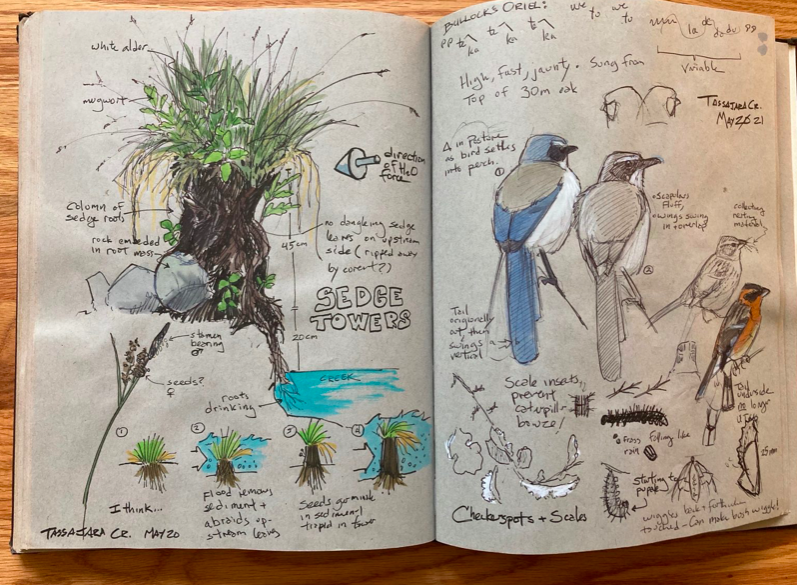 white alder
mugwort
direction
of H2O
force
Column of
sedge roots
rock embedded
in root mass
no dangling sedge
leaves on upstream
side (ripped away
by
45cm
SEDGE
TOWERS
20cm
stamen
bearing
♂
seeds?
♀
CREEK
roots
drinking
1
2
3
4
I think...
Flood removes
sediment +
abraids up-
stream leaves
Seeds germinate
in sediment
trapped in tower
TASSAJARA CR. MAY 20
BULLOCKS ORIEL:
we we
to to
ka ka ka
la de
do do
Variable
High, fast, jaunty. Sung from
Top of 30m oak
TASSAJARA CR.
MAY 20 21
Δ in Posture
as bird settles
into perch.
1
2
• Scapulars
fluffy
• wings swing
in + overlap
collecting
nesting
material
Tail
originally
out then
swings
vertical
Tail
underside
Scale insects
prevent
caterpillar
bonze!
frass falling like
rain
25mm
starting to
pupate
wiggles back + forth if
touched - Can make bush wiggle!
Checkerspots + Scales